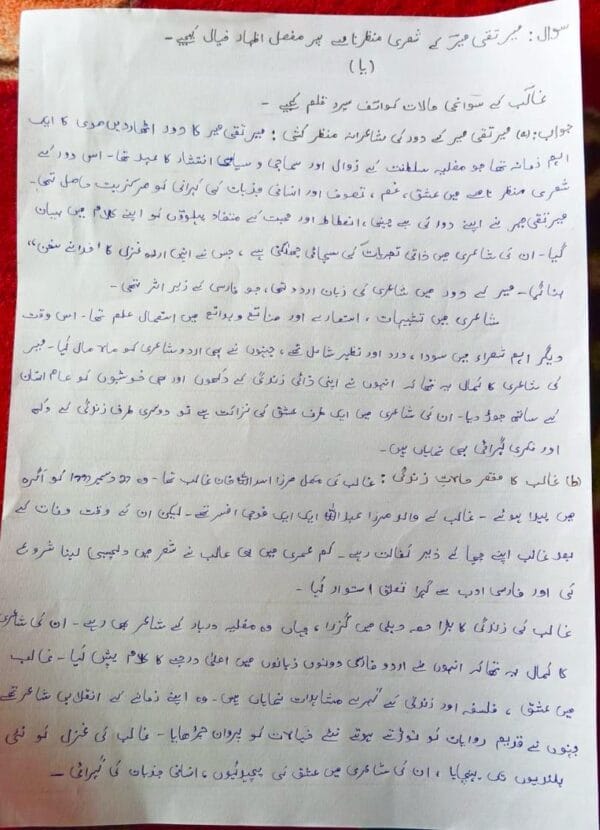 سوال: میر تقی میر کے شعری منظر نامے پر مفصل اظہار خیال کیجیے۔
(یا)
غالب کے سوانحی حالات کوائف سپرد قلم کیجیے۔
جواب: (a) میر تقی میر کے دور کی شاعرانہ منظر کشی: میر تقی میر کا دور اٹھاردیں صدی کا ایک
اہم زمانہ تھا جو مغلیہ سلطنت کے زوال اور سماجی و سیاسی انتشار کا عہد تھا۔ اس دور کے
شعری منظر نامے میں عشق، غم، تصوف اور انسانی جذبات کی گہرائی کو مرکزیت حاصل تھی۔
میر تقی میر نے اپنے دور کی بے چینی، انحطاط اور محبت کے متضاد پہلوؤں کو اپنے کلام میں بیان
کیا۔ ان کی شاعری میں ذاتی تجربات کی سچائی جھلکتی ہے، جس نے انہیں اردو غزل کا "خدائے سخن"
بنا دیا۔ میر کے دور میں شاعری کی زبان اردو تھی، جو فارسی کے زیر اثر تھی۔
شاعری میں تشبیہات، استعارے اور صنائع و بدائع میں استعمال علم تھا۔ اس وقت
دیگر اہم شعراء میں سودا، درد اور نظیر شامل تھے، جنہوں نے بھی اردو شاعری کو مالا مال کیا۔ میر
کی شاعری کا کمال یہ تھا کہ انہوں نے اپنی ذاتی زندگی کے دکھوں اور خوشیوں کو عام انسان
کے ساتھ جوڑ دیا۔ ان کی شاعری میں ایک طرف عشق کی نزاکت ہے تو دوسری طرف زندگی کے دکھ
اور فکری گہرائی بھی نمایاں ہیں۔
(b) غالب کا مختصر حالات زندگی: غالب کی مکمل مرزا اسد اللہ خان غالب تھا۔ وہ 27 دسمبر 1797 کو آگرہ
میں پیدا ہوئے۔ غالب کے والد مرزا عبد اللہ ایک ایک فوجی افسر تھے۔ لیکن ان کے وقت وفات کے
بعد غالب اپنے چچا کے زیر کفالت رہے۔ کم عمری میں ہی غالب نے شعر میں دلچسپی لینا شروع
کی اور فارسی ادب سے گہرا تعلق استوار کیا۔
غالب کی زندگی کا بڑا حصہ دہلی میں گزرا، جہاں وہ مغلیہ دربار کے شاعر بھی رہے۔ ان کی شاعری
کا کمال یہ تھا کہ انہوں نے اردو فارسی دونوں زبانوں میں اعلیٰ درجے کا کلام پیش کیا۔ غالب
میں عشق، فلسفہ اور زندگی کے گہرے مشاہدات نمایاں ہیں۔ وہ اپنے زمانے کے انقلابی شاعر تھے
جنہوں نے قدیم روایات کو توڑتے ہوئے نئے خیالات کو پروان چڑھایا۔ غالب کی غزل کو نئی
بلندیوں تک پہنچایا، ان کی شاعری میں عشق کی پیچیدگیوں، انسانی جذبات کی گہرائی۔